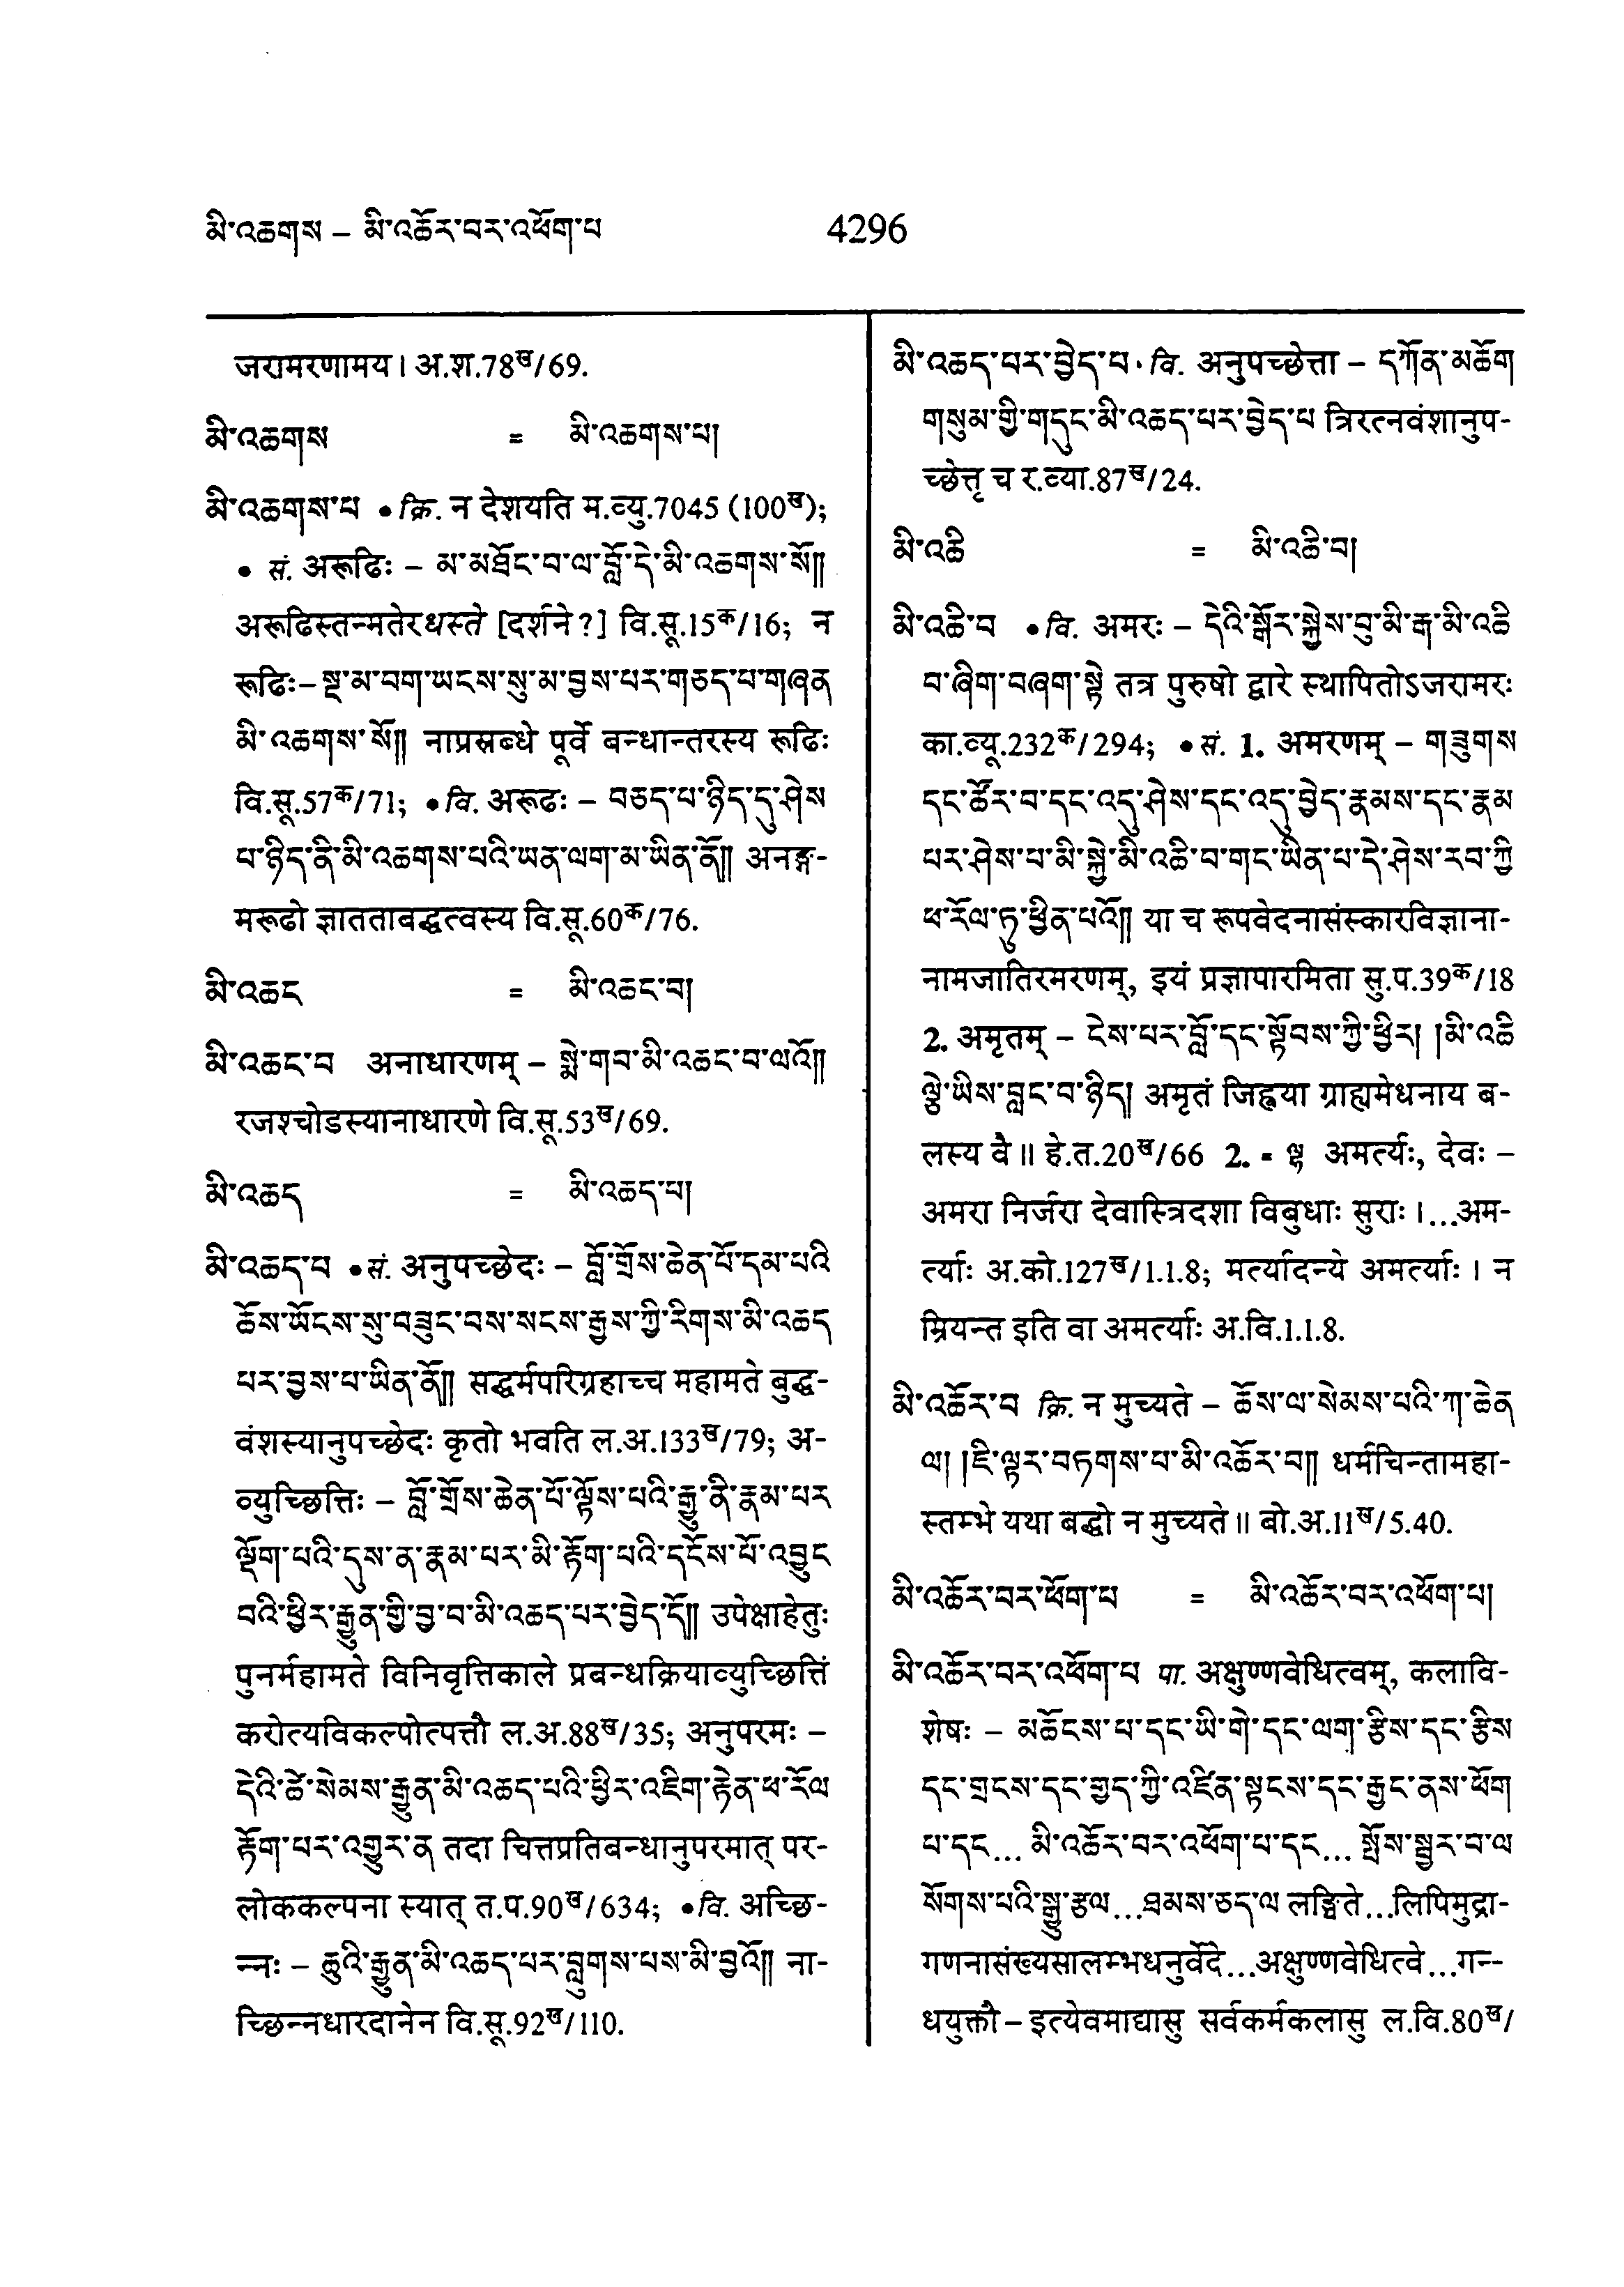 མི་འཆགས – མི་འཆོར་བར་འཕོག་པ
4296
जरामरणामय । अ.श.78ख/69.
མི་འཆགས = མི་འཆགས་པ།
མི་འཆགས་པ • क्रि. न देशयति म.व्यु.7045 (100ख);
• सं. अरूढिः – མ་མཐོང་བ་ལ་བློ་དེ་མི་འཆགས་སོ༎
अरूढिस्तन्मतेरधस्ते [दर्शने ?] वि.सू.15क/16; न
रूढिः– སྔ་མ་བག་ཡངས་སུ་མ་བྱས་པར་གཅད་པ་གཞན
མི་འཆགས་སོ༎ नाप्रस्रब्धे पूर्वे बन्धान्तरस्य रूढिः
वि.सू.57क/71; • वि. अरूढः – བཅད་པ་ཉིད་དུ་ཤེས
པ་ཉིད་ནི་མི་འཆགས་པའི་ཡན་ལག་མ་ཡིན་ནོ༎ अनङ्ग-
मरूढो ज्ञातताबद्धत्वस्य वि.सू.60क/76.
མི་འཆང = མི་འཆང་བ།
མི་འཆང་བ अनाधारणम् – སྨེ་གབ་མི་འཆང་བ་ལའོ༎
रजश्चोडस्यानाधारणे वि.सू.53ख/69.
མི་འཆད = མི་འཆད་པ།
མི་འཆད་པ • सं. अनुपच्छेदः – བློ་གྲོས་ཆེན་པོ་དམ་པའི
ཆོས་ཡོངས་སུ་བཟུང་བས་སངས་རྒྱས་ཀྱི་རིགས་མི་འཆད
པར་བྱས་པ་ཡིན་ནོ༎ सद्धर्मपरिग्रहाच्च महामते बुद्ध-
वंशस्यानुपच्छेदः कृतो भवति ल.अ.133ख/79; अ-
व्युच्छित्तिः – བློ་གྲོས་ཆེན་པོ་ལྟོས་པའི་རྒྱུ་ནི་རྣམ་པར
ལྡོག་པའི་དུས་ན་རྣམ་པར་མི་རྟོག་པའི་དངོས་པོ་འབྱུང
བའི་ཕྱིར་རྒྱུན་གྱི་བྱ་བ་མི་འཆད་པར་བྱེད་དོ༎ उपेक्षाहेतुः
पुनर्महामते विनिवृत्तिकाले प्रबन्धक्रियाव्युच्छित्तिं
करोत्यविकल्पोत्पत्तौ ल.अ.88ख/35; अनुपरमः –
དེའི་ཚེ་སེམས་རྒྱུན་མི་འཆད་པའི་ཕྱིར་འཇིག་རྟེན་ཕ་རོལ
རྟོག་པར་འགྱུར་ན तदा चित्तप्रतिबन्धानुपरमात् पर-
लोककल्पना स्यात् त.प.90ख/634; • वि. अच्छि-
न्नः – ཆུའི་རྒྱུན་མི་འཆད་པར་བླུགས་པས་མི་བྱའོ༎ ना-
च्छिन्नधारदानेन वि.सू.92ख/110.
མི་འཆད་པར་བྱེད་པ · वि. अनुपच्छेत्ता – དཀོན་མཆོག
གསུམ་གྱི་གདུང་མི་འཆད་པར་བྱེད་པ त्रिरत्नवंशानुप-
च्छेत्तृ च र.व्या.87ख/24.
མི་འཆི = མི་འཆི་བ།
མི་འཆི་བ • वि. अमरः – དེའི་སྒོར་སྐྱེས་བུ་མི་རྒ་མི་འཆི
བ་ཞིག་བཞག་སྟེ तत्र पुरुषो द्वारे स्थापितोऽजरामरः
का.व्यू.232क/294; • सं. 1. अमरणम् – གཟུགས
དང་ཚོར་བ་དང་འདུ་ཤེས་དང་འདུ་བྱེད་རྣམས་དང་རྣམ
པར་ཤེས་པ་མི་སྐྱེ་མི་འཆི་བ་གང་ཡིན་པ་དེ་ཤེས་རབ་ཀྱི
ཕ་རོལ་ཏུ་ཕྱིན་པའོ༎ या च रूपवेदनासंस्कारविज्ञाना-
नामजातिरमरणम्, इयं प्रज्ञापारमिता सु.प.39क/18
2. अमृतम् – ངེས་པར་བློ་དང་སྟོབས་ཀྱི་ཕྱིར། །མི་འཆི
ལྕེ་ཡིས་བླང་བ་ཉིད། अमृतं जिह्वया ग्राह्यमेधनाय ब-
लस्य वै ॥ हे.त.20ख/66 2. = ལྷ अमर्त्यः, देवः –
अमरा निर्जरा देवास्त्रिदशा विबुधाः सुराः ।...अम-
र्त्याः अ.को.127ख/1.1.8; मर्त्यादन्ये अमर्त्याः । न
म्रियन्त इति वा अमर्त्याः अ.वि.1.1.8.
མི་འཆོར་བ क्रि. न मुच्यते – ཆོས་ལ་སེམས་པའི་ཀ་ཆེན
ལ། །ཇི་ལྟར་བཏགས་པ་མི་འཆོར་བ༎ धर्मचिन्तामहा-
स्तम्भे यथा बद्धो न मुच्यते ॥ बो.अ.11ख/5.40.
མི་འཆོར་བར་ཕོག་པ = མི་འཆོར་བར་འཕོག་པ།
མི་འཆོར་བར་འཕོག་པ पा. अक्षुण्णवेधित्वम्, कलावि-
शेषः – མཆོངས་པ་དང་ཡི་གེ་དང་ལག་རྩིས་དང་རྩིས
དང་གྲངས་དང་གྱད་ཀྱི་འཛིན་སྟངས་དང་རྒྱང་ནས་ཕོག
པ་དང... མི་འཆོར་བར་འཕོག་པ་དང... སྤོས་སྦྱར་བ་ལ
སོགས་པའི་སྒྱུ་རྩལ...ཐམས་ཅད་ལ लङ्घिते...लिपिमुद्रा-
गणनासंख्यसालम्भधनुर्वेदे...अक्षुण्णवेधित्वे...गन्-
धयुक्तौ – इत्येवमाद्यासु सर्वकर्मकलासु ल.वि.80ख/